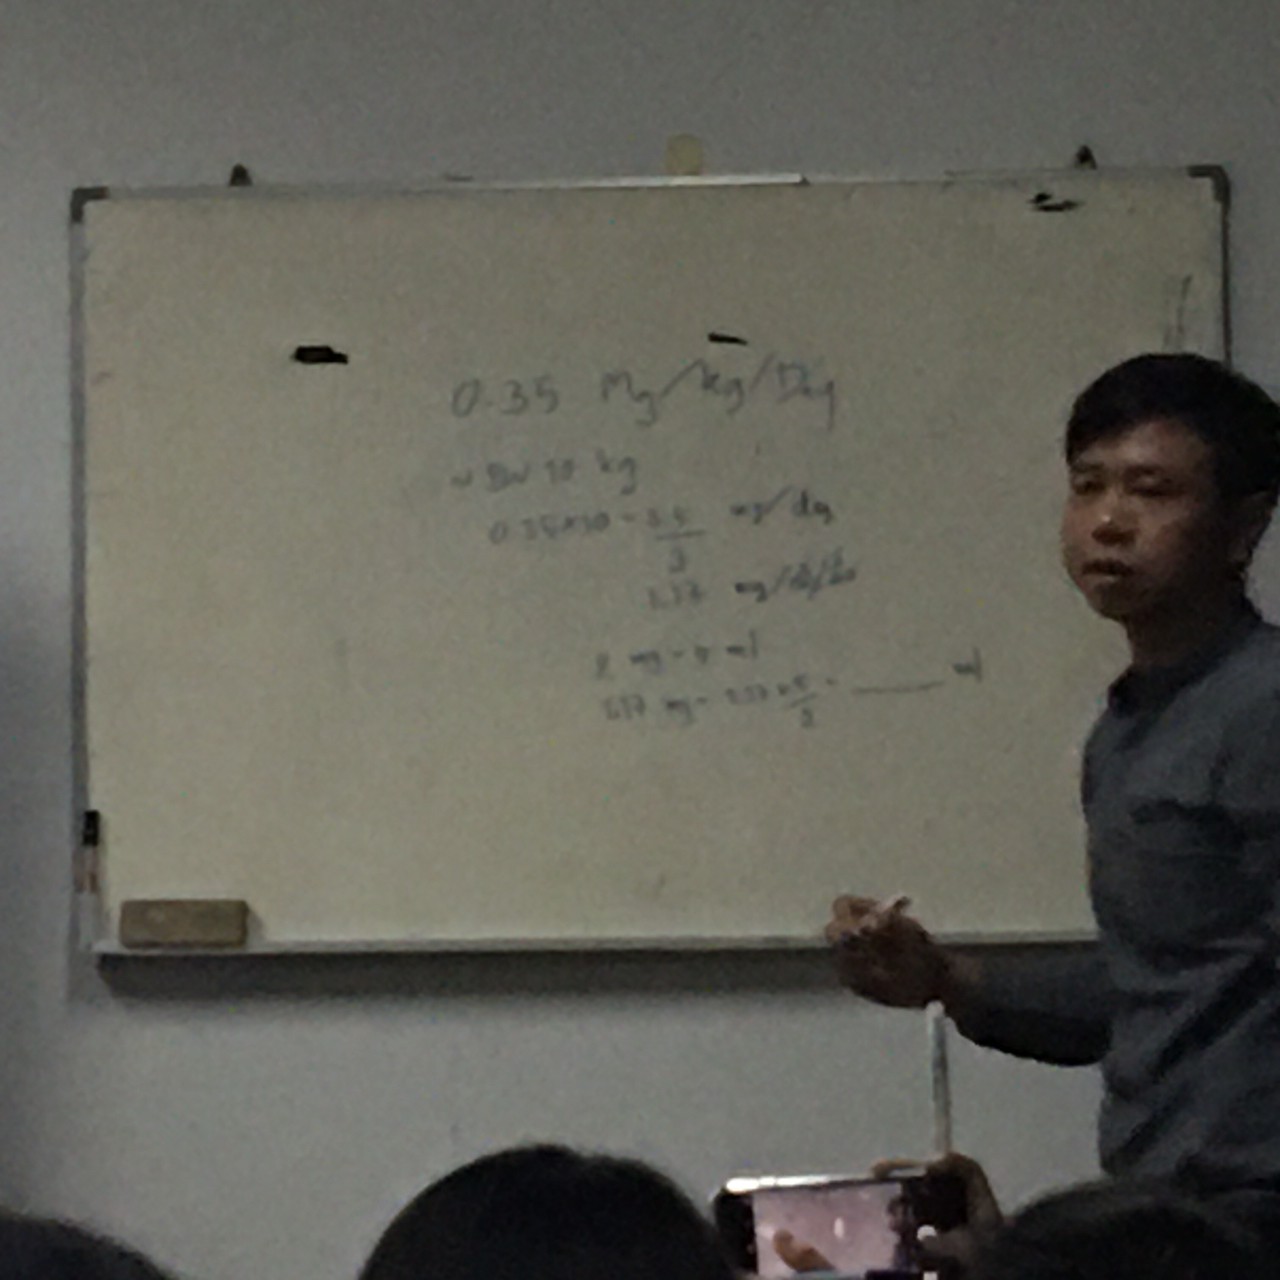 0.35 Mg/kg/Day
BW 10 kg
0.35x10 = 3.5 mg/day
3
1.17 mg/
2 mg = 5 ml
1.17 mg = 1.17 x 5 = ____ ml
2